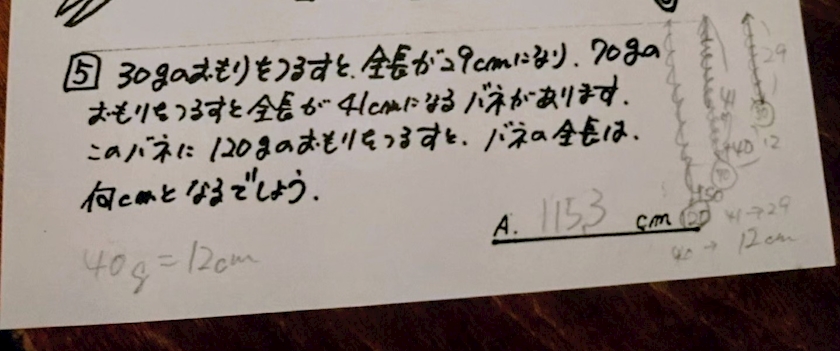 5 30gのおもりをつるすと、全長が29cmになり、70gの
おもりをつるすと全長が41cmになるバネがあります。
このバネに120gのおもりをつるすと、バネの全長は、
何cmとなるでしょう。
A. 115,3 cm
40g=12cm
29
41
30
+40
12
70
+50
120
41→29
40→12cm